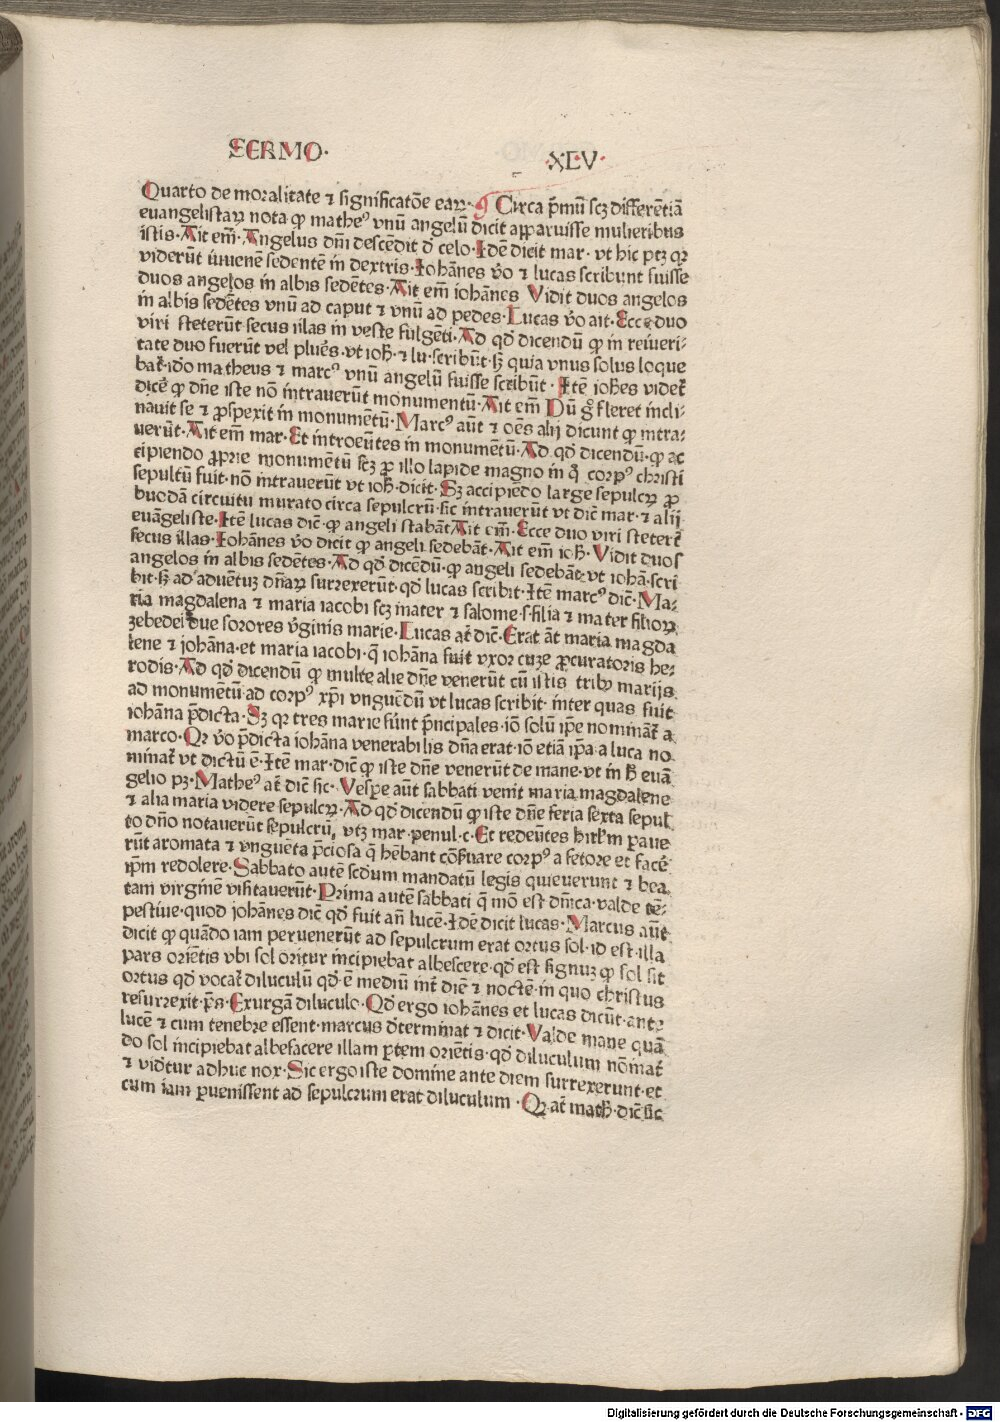 SERMO· ·XLV·
Quarto de moralitate ⁊ significatōe eaꝝ· Circa p̄mū scꝫ differētiā
euangelistaꝝ nota ꝙ matheꝰ vnū angelū dicit apparuisse mulieribus
istis·Ait em̄·Angelus dn̄i descēdit d̄ celo·Idē dicit mar·vt hic ptꝫ qꝛ
viderūt iuuenē sedentē in dextris·Iohānes v̄o ⁊ lucas scribunt fuisse
duos angelos in albis sedētes·Ait em̄ iohānes Vidit duos angelos
in albis sedētes vnū ad caput ⁊ vnū ad pedes·Lucas v̄o ait·Ecce duo
viri steterūt secus illas in veste fulgēti·Ad qd̄ dicendū ꝙ in reiueri⸗
tate duo fuerūt vel plures·vt ioh̄·⁊ lu·scribūt·sꝫ quia vnus solus loque
bat᷑·ido matheus ⁊ marcꝰ vnū angelū fuisse scribūt·Itē ioh̄es videt᷑
dicē ꝙ dn̄e iste nō intrauerūt monumentū·Ait em̄ Dū g̊ fleret incli⸗
nauit se ⁊ ꝓspexit in monumētū·Marcꝰ aūt ⁊ oēs alij dicunt ꝙ intra⸗
uerūt·Ait em̄ mar·Et introeūtes in monumētū·Ad qd̄ dicendū·ꝙ ac
cipiendo ꝓprie monumētū scꝫ ꝓ illo lapide magno in q̄ corpꝰ christi
sepultū fuit·nō intrauerūt vt ioh̄·dicit·Sꝫ accipiēdo large sepulcꝝ ꝓ
quodā circuitu murato circa sepulcrū·sic intrauerūt vt dic̄ mar·⁊ alij
euāgeliste·Itē lucas dic̄·ꝙ angeli stabāt Ait em̄·Ecce duo viri stetert̄
secus illas·Iohānes v̄o dicit ꝙ angeli sedebāt·Ait em̄ ioh̄·Vidit duos
angelos in albis sedētes·Ad qd̄ dicēdū·ꝙ angeli sedebāt·vt iohā·scri
bit·sꝫ ad aduētuꝫ dn̄aꝝ surrexerūt·qd̄ lucas scribit·Itē marcꝰ dic̄·Ma⸗
ria magdalena ⁊ maria iacobi scꝫ mater ⁊ salome·s·filia ⁊ mater filioꝝ
zebedei due sorores v̄ginis marie·Lucas at̄ dic̄·Erat āt maria magda
lene ⁊ johāna·et maria iacobi·q̄ iohāna fuit vxor cuze ꝓcuratoris he⸗
rodis·Ad qd̄ dicendū ꝙ multe alie dn̄e venerūt cū istis tribꝰ marijs
ad monumētū ad corpꝰ xp̄i vnguēdū vt lucas scribit·inter quas fuit
iohāna p̄dicta·Sꝫ qꝛ tres marie fūnt p̄ncipales·iō solū ip̄e nominātᷣ a
marco·Qꝛ v̄o p̄dicta iohāna venerabilis dn̄a erat·iō etiā ip̄a·a luca no
minatᷣ vt dictū ē·Itē mar·dic̄ ꝙ iste dn̄e venerūt de mane·vt in h̄ euā
gelio pꝫ·Matheꝰ at̄ dic̄ sic·Vesꝑe aūt sabbati venit maria magdalene
⁊ alia maria videre sepulcꝝ·Ad qd̄ dicendū ꝙ iste dn̄e feria sexta sepul
to dn̄o notauerūt sepulcrū, vtꝫ mar·penul·c·Et redeūtes hirlm̄ paue
rūt aromata ⁊ vnguēta p̄ciosa q̄ hēbant cōẜuare corpꝰ a fetore et facē
ip̄m redolere·Sabbato autē scd̄um mandatū legis quieuerunt ⁊ bea
tam virginē visitauerūt·Prima autē sabbati q̄ mō est dn̄ica·valde tē⸗
pestiue·quod johānes dic̄ qd̄ fuit an̄ lucē·Idē dicit lucas·Marcus aūt
dicit ꝙ quādo iam peruenerūt ad sepulcrum erat ortus sol·id est·illa
pars oriētis vbi sol oritur incipiebat albescere·qd̄ est signuꝫ ꝙ sol sit
ortus qd̄ vocat᷑ diluculū qd̄·ē mediū int̄ diē ⁊ noctē·in quo christus
resurrexit·p̄s·Exurgā diluculo·Qd̄ ergo iohānes et lucas dicūt·ante
lucē ⁊ cum tenebre essent·marcus d̄terminat ⁊ dicit·Valde mane quā
do sol incipiebat albefacere illam ꝑtem oriētis·qd̄ diluculum nōmat᷑
⁊ vid̄tur adhuc nox·Sic ergo iste domine ante diem surrexerunt·et
cum iam ꝑuenissent ad sepulcrum erat diluculum·Qꝛ at̄ math̄·dic̄ sic
Digitalisierung gefördert durch die Deutsche Forschungsgemeinschaft - DFG